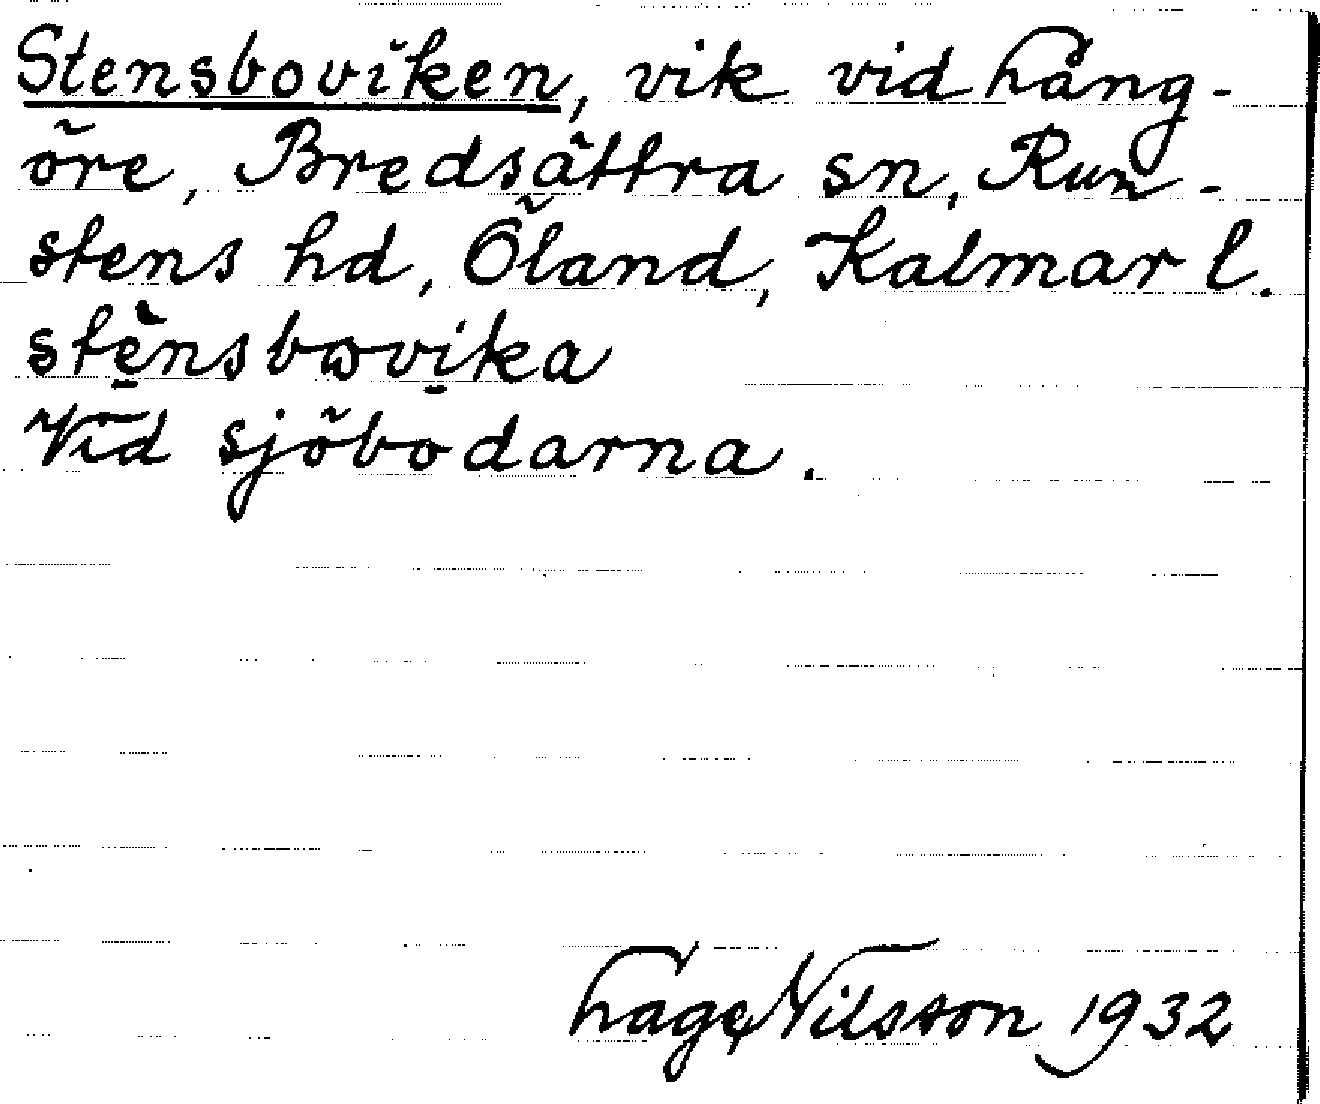 Stensboviken, vik vid hång-
öre, Bredsättra sn, Run-
stens hd, Öland, Kalmar l.
stènsbωvika
Vid sjöbodarna.
Hage Nilsson 1932